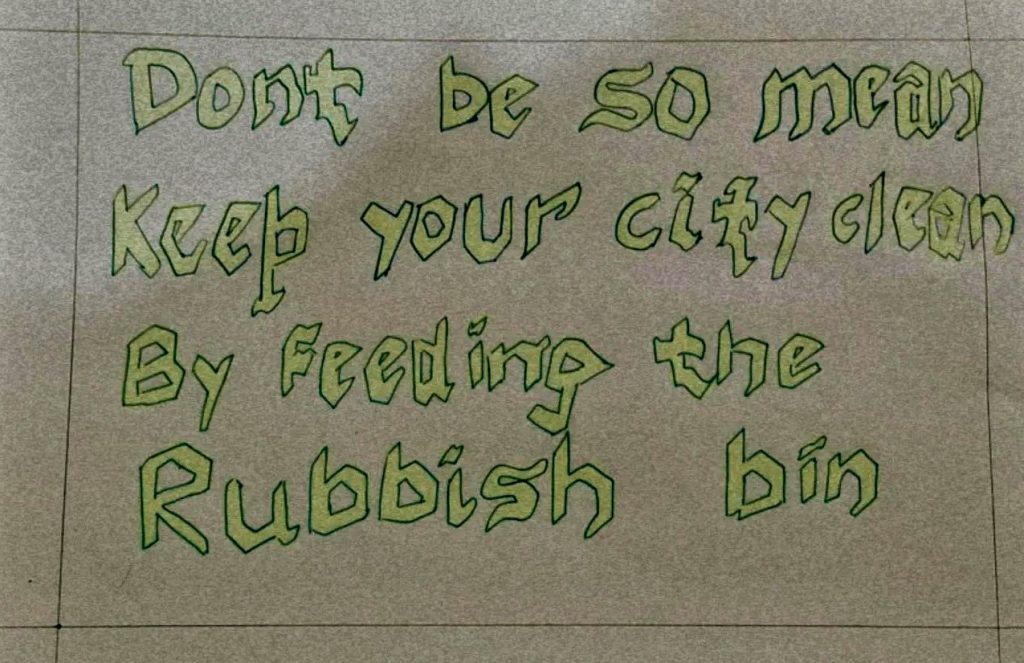 Dont be so mean
Keep your city clean
By feeding the
Rubbish bin